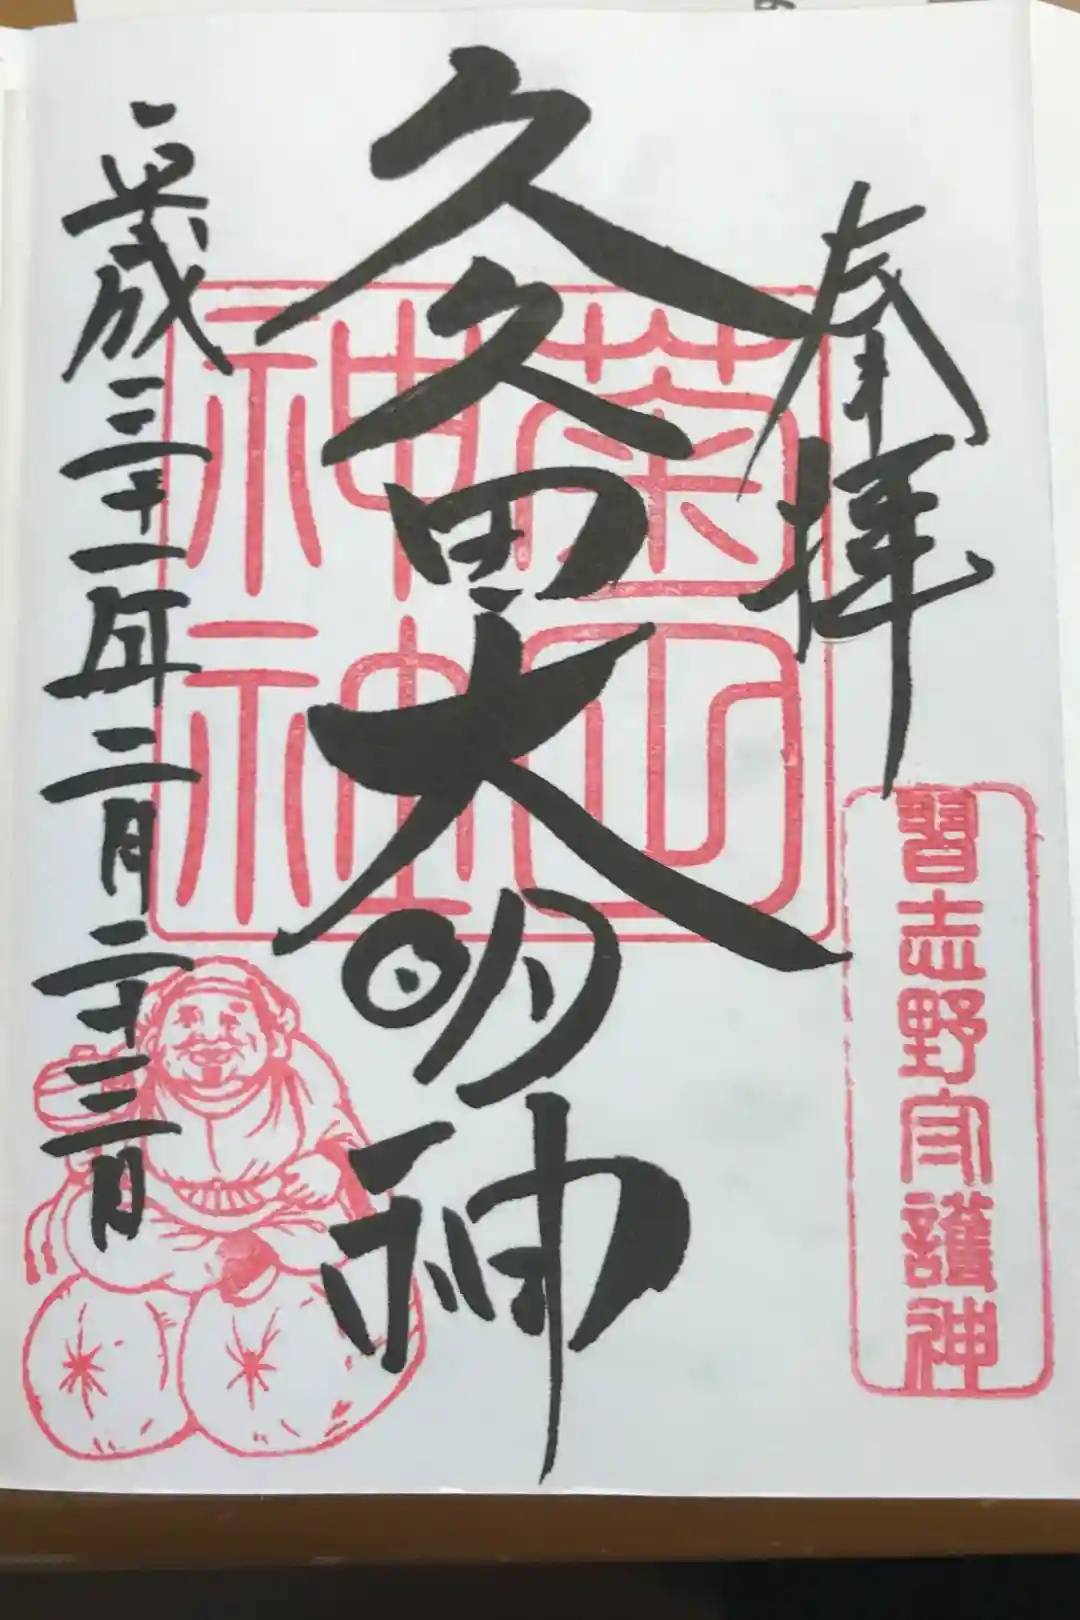 奉拝
習志野守護神
久久田大明神
菊田
神社
平成三十一年二月二十三日